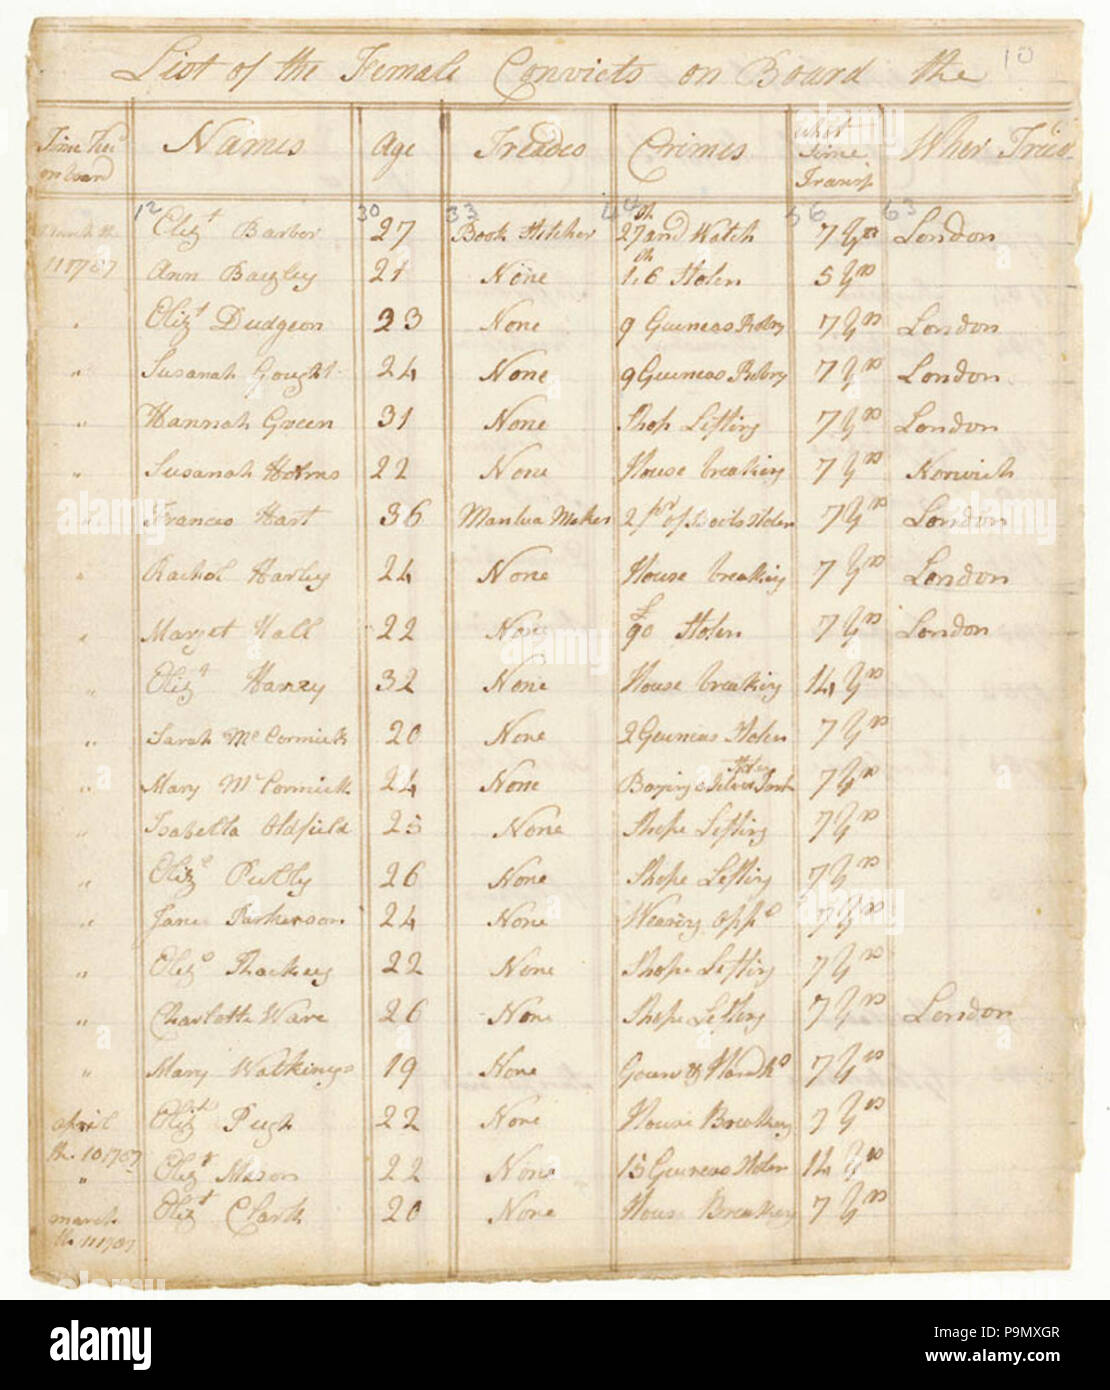 List of the Female Convicts on Board the 10
Time Rec'd on board Names Age Treades Crimes what Time Transp Wher Tried
12 30 33 44 56 63
March th Eliz't Barbor 27 Book Stitcher 27th and Watch 7 Yrs London
11 1787 Ann Bazley 21 None 1.6 Stolen 5 Yrs
" Eliz't Dudgeon 23 None 9 Gueneas Robry 7 Yrs London
" Susanah Gought 24 None 9 Gueneas Robry 7 Yrs London
" Hannah Green 31 None Shop Lifting 7 Yrs London
" Susanah Holms 22 None House breaking 7 Yrs Norwich
" Frances Hart 36 Mantua Maker 2 pr of Stolen 7 Yrs London
" Rachol Harley 24 None House breaking 7 Yrs London
" Marget Hall 22 None £90 Stolen 7 Yrs London
" Eliz't Harvey 32 None House breaking 14 Yrs
" Sarah McCormick 20 None 2 Gueneas Stolen 7 Yrs
" Mary McCormick 24 None Buying Stolen 7 Yrs
" Isabella Oldfield 25 None Shope Lefting 7 Yrs
" Eliz Pully 26 None Shope Lefting 7 Yrs
" Jane Parkerson 24 None Wearing opp 7 Yrs
" Eliz Thackey 22 None Shope Lefting 7 Yrs
" Charlotte Ware 26 None Shope Lefting 7 Yrs London
" Mary Watkings 19 None Gown & Handk 7 Yrs
april Eliz't Pugh 22 None House Breaking 7 Yrs
th. 10 1787
" Eliz't Mason 22 None 15 Gueneas Stolen 14 Yrs
march Eliz't Clark 20 None House Breaking 7 Yrs
th. 11 1787
alamy
alamy
Image ID: P9MXGR
www.alamy.com